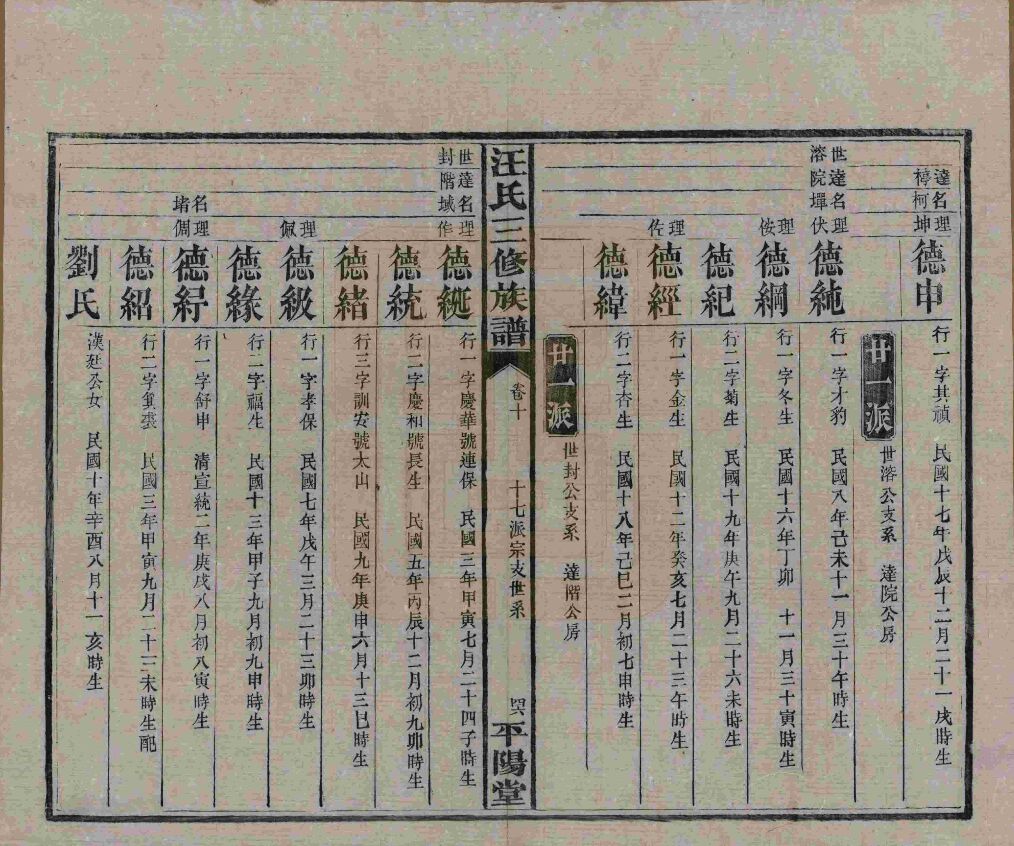 達名理
梼柯坤
德申
行一字其禎 民國十七年戊辰十二月二十一戌時生
廿一派
世溶公支系 達院公房
世達名理
溶院墠伏
德純
行一字才豹 民國八年己未十一月三十午時生
理侒
德綱
行一字冬生 民國十六年丁卯 十一月三十寅時生
德紀
行二字菊生 民國十九年庚午九月二十六未時生
理佐
德經
行一字金生 民國十二年癸亥七月二十三午時生
德緯
行二字杏生 民國十八年己巳二月初七申時生
廿一派
世封公支系 達階公房
汪氏三修族譜
卷十
十七派宗支世系
平陽堂
世達名理
封階域作
德綖
行一字慶華號連保 民國三年甲寅七月二十四子時生
德統
行二字慶和號長生 民國五年丙辰十二月初九卯時生
德緒
行三字訓安號太山 民國九年庚申六月十三巳時生
理佩
德級
行一字孝保 民國七年戊午三月二十三卯時生
德緣
行二字福生 民國十三年甲子九月初九申時生
名理
堵倜
德紆
行一字舒申 清宣統二年庚戌八月初八寅時生
德紹
行二字箕裘 民國三年甲寅九月二十三未時生配
劉氏
漢廷公女 民國十年辛酉八月十一亥時生